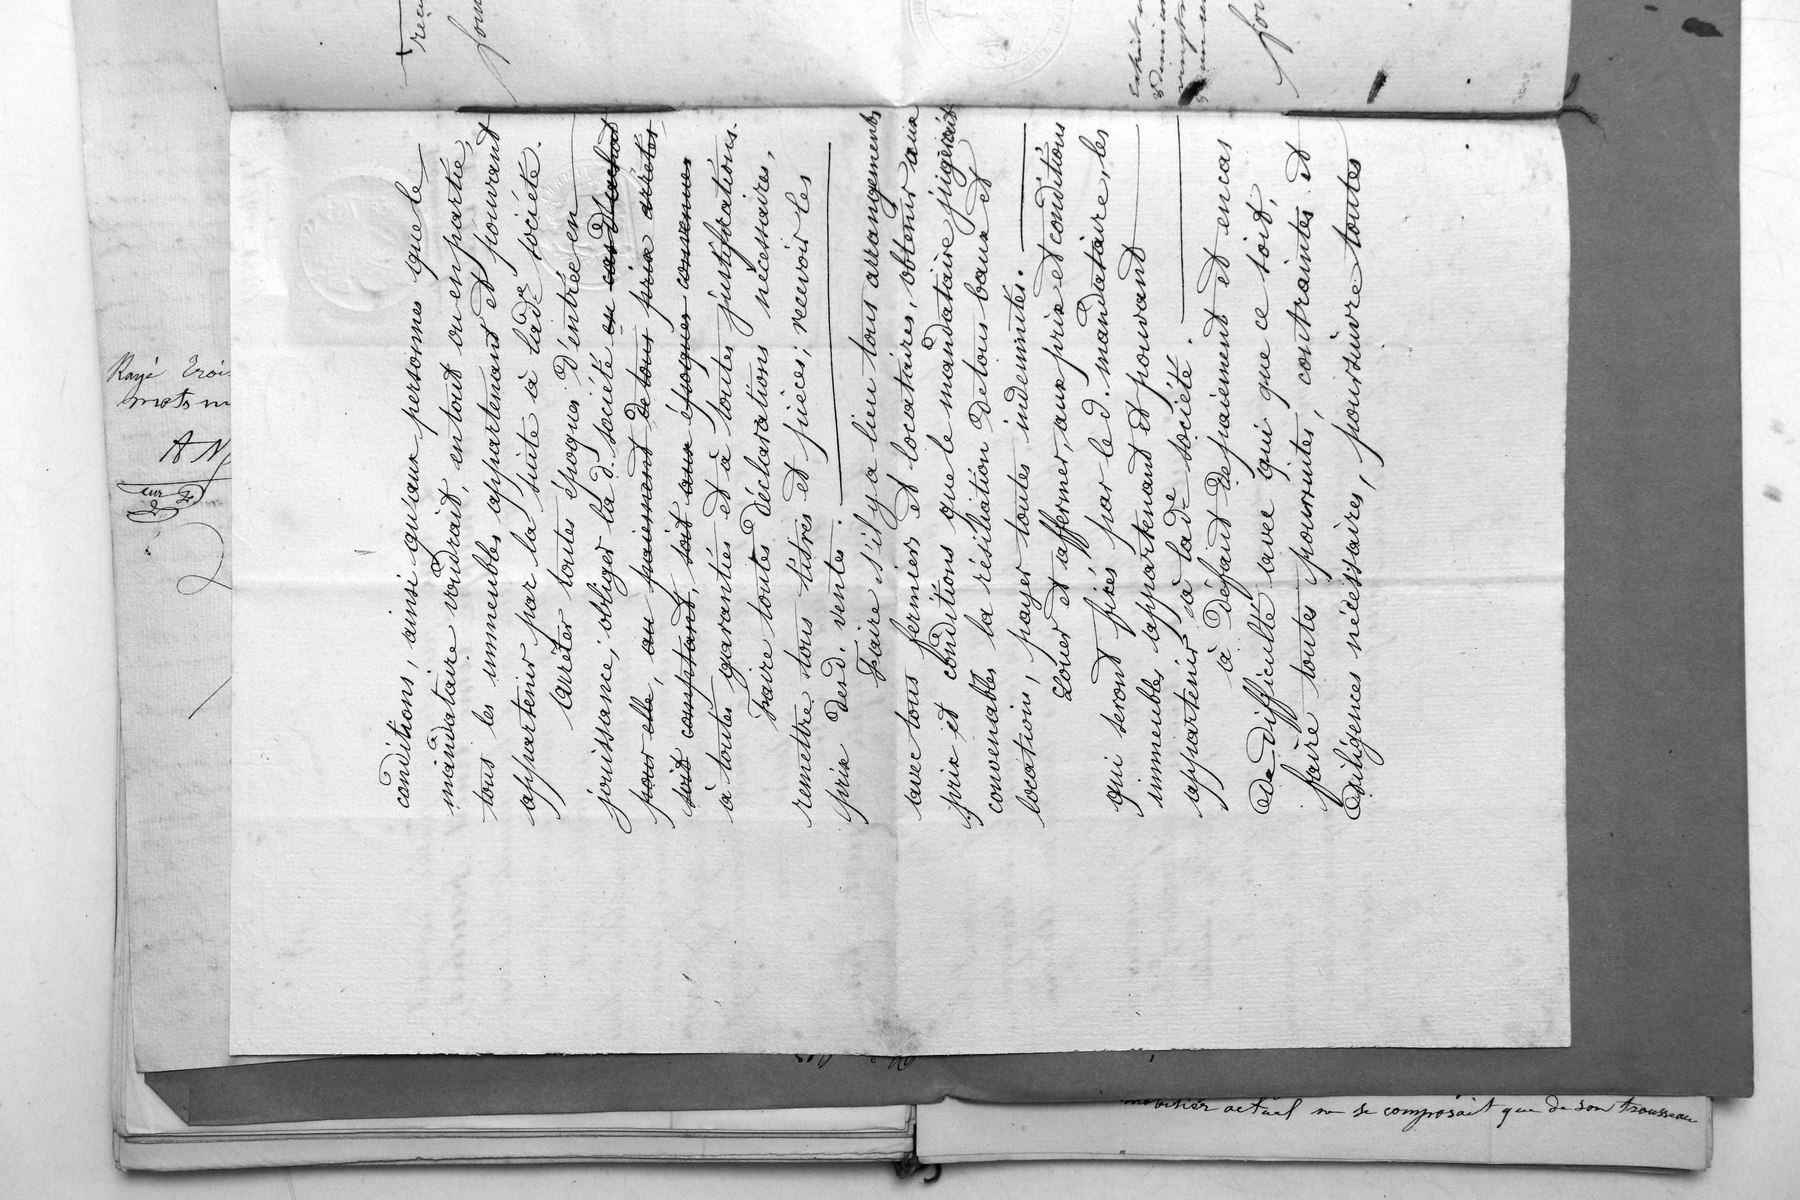 conditions, ainsi qu'aux personnes que le
mandataire voudrait, en tout ou en partie,
tous les immeubles appartenant et pouvant
appartenir par la suite à lade société.
arrêter toutes époques d'entrée en
jouissance, obliger la d. société en cas d'achat
pour elle, au paiement de tous prix arrêtés
soit comptant, soit aux époques convenues
à toutes garanties et à toutes justifications.
Faire toutes déclarations nécessaires,
remettre tous titres et pièces, recevoir les
prix desd. ventes.
Faire s'il y a lieu tous arrangements
avec tous fermiers et locataires, obtenir aux
prix et conditions que le mandataire jugerait
convenables la résiliation de tous baux et
locations, payer toutes indemnités.
Louer et affermer, aux prix et conditions
qui seront fixés par le d. mandataire, les
immeubles appartenant et pouvant
appartenir à lade société.
à défaut de paiement et en cas
de difficulté avec qui que ce soit,
faire toutes poursuites, contraintes et
diligences nécessaires, poursuivre toutes
Rayé trois
mots n
A N
mobilier actuel ne se composait que de son trousseau